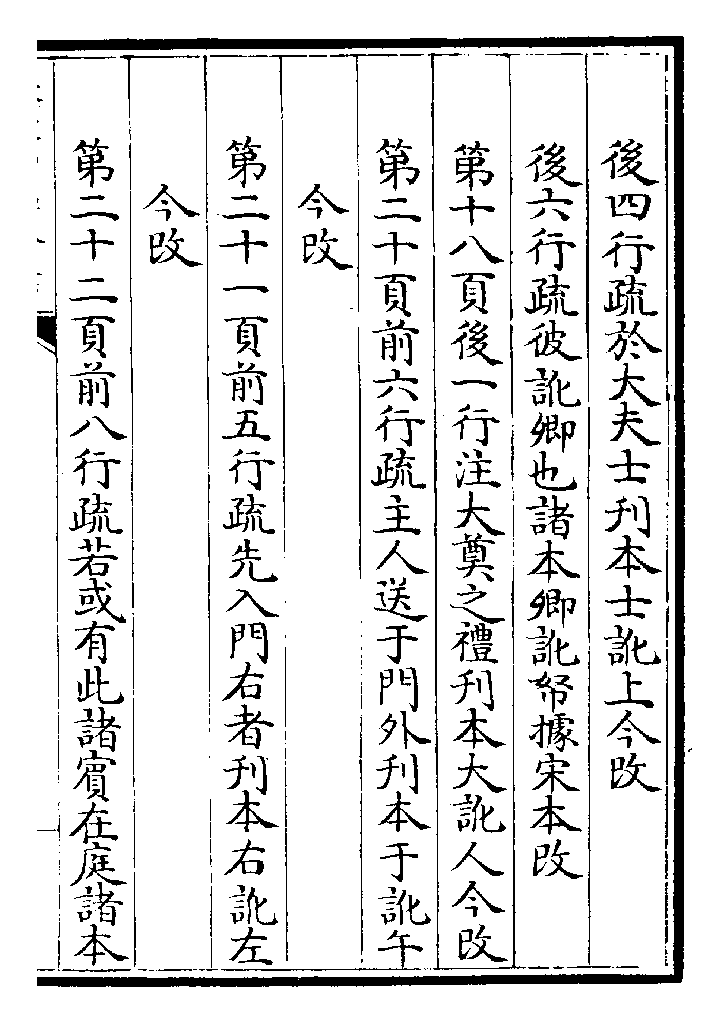 後四行疏於大夫士刋本士訛上今改
後六行疏彼訛卿也諸本卿訛帑據宋本改
第十八頁後一行注大奠之禮刋本大訛人今改
第二十頁前六行疏主人送于門外刋本于訛午
今改
第二十一頁前五行疏先入門右者刋本右訛左
今改
第二十二頁前八行疏若或有此諸賓在庭諸本